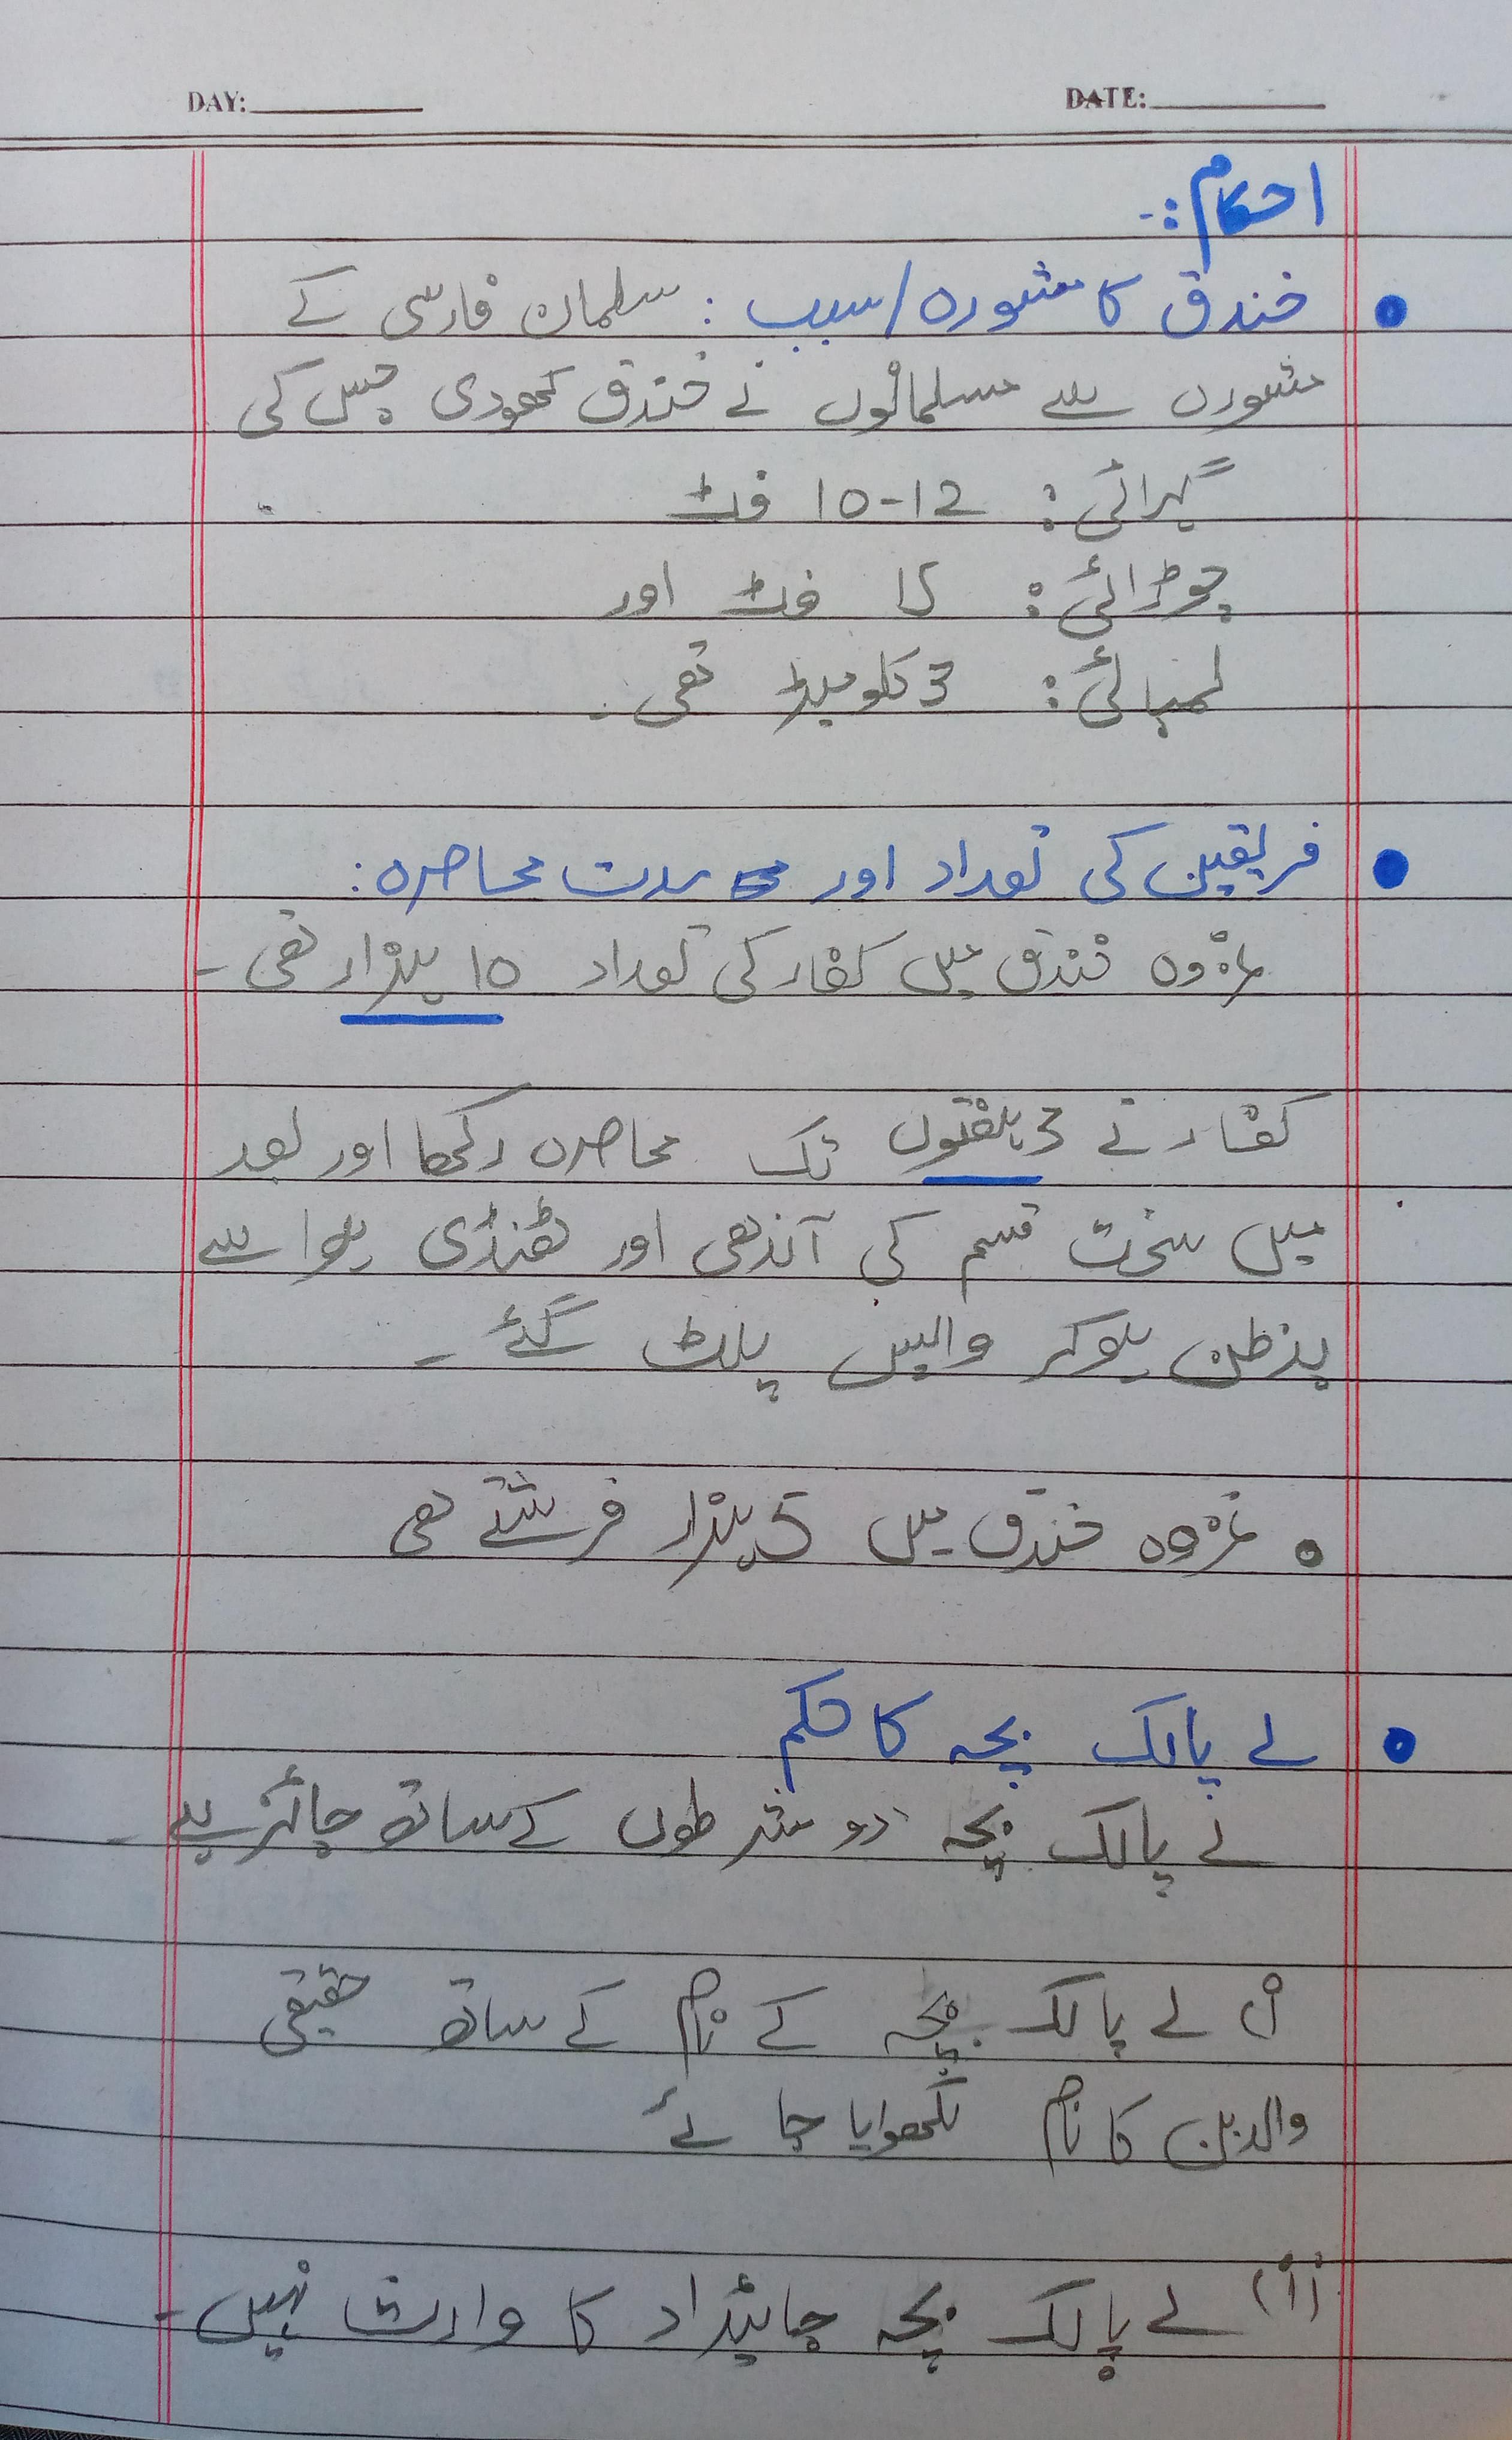 DAY: DATE:
احکام:-
• خندق کا مشورہ/سبب: سلمان فارسی کے
مشورہ سے مسلمانوں نے خندق کھودی جس کی
گہرائی: 10-12 فٹ
چوڑائی: 15 فٹ اور
لمبائی: 3 کلومیٹر تھی۔
• فریقین کی تعداد اور مدت محاصرہ:
غزوہ خندق میں کفار کی تعداد 10 ہزار تھی۔
کفار نے 3 ہفتوں تک محاصرہ رکھا اور بعد
میں سخت قسم کی آندھی اور ٹھنڈی ہوا سے
بدظن ہوکر واپس پلٹ گئے۔
• غزوہ خندق میں 5 ہزار فرشتے تھی
• لے پالک بچہ کا حکم
لے پالک بچہ دو شرطوں کے ساتھ جائز ہے۔
(i) لے پالک بچہ کے نام کے ساتھ حقیقی
والدین کا نام لکھوایا جائے
(ii) لے پالک بچہ جائیداد کا وارث نہیں۔